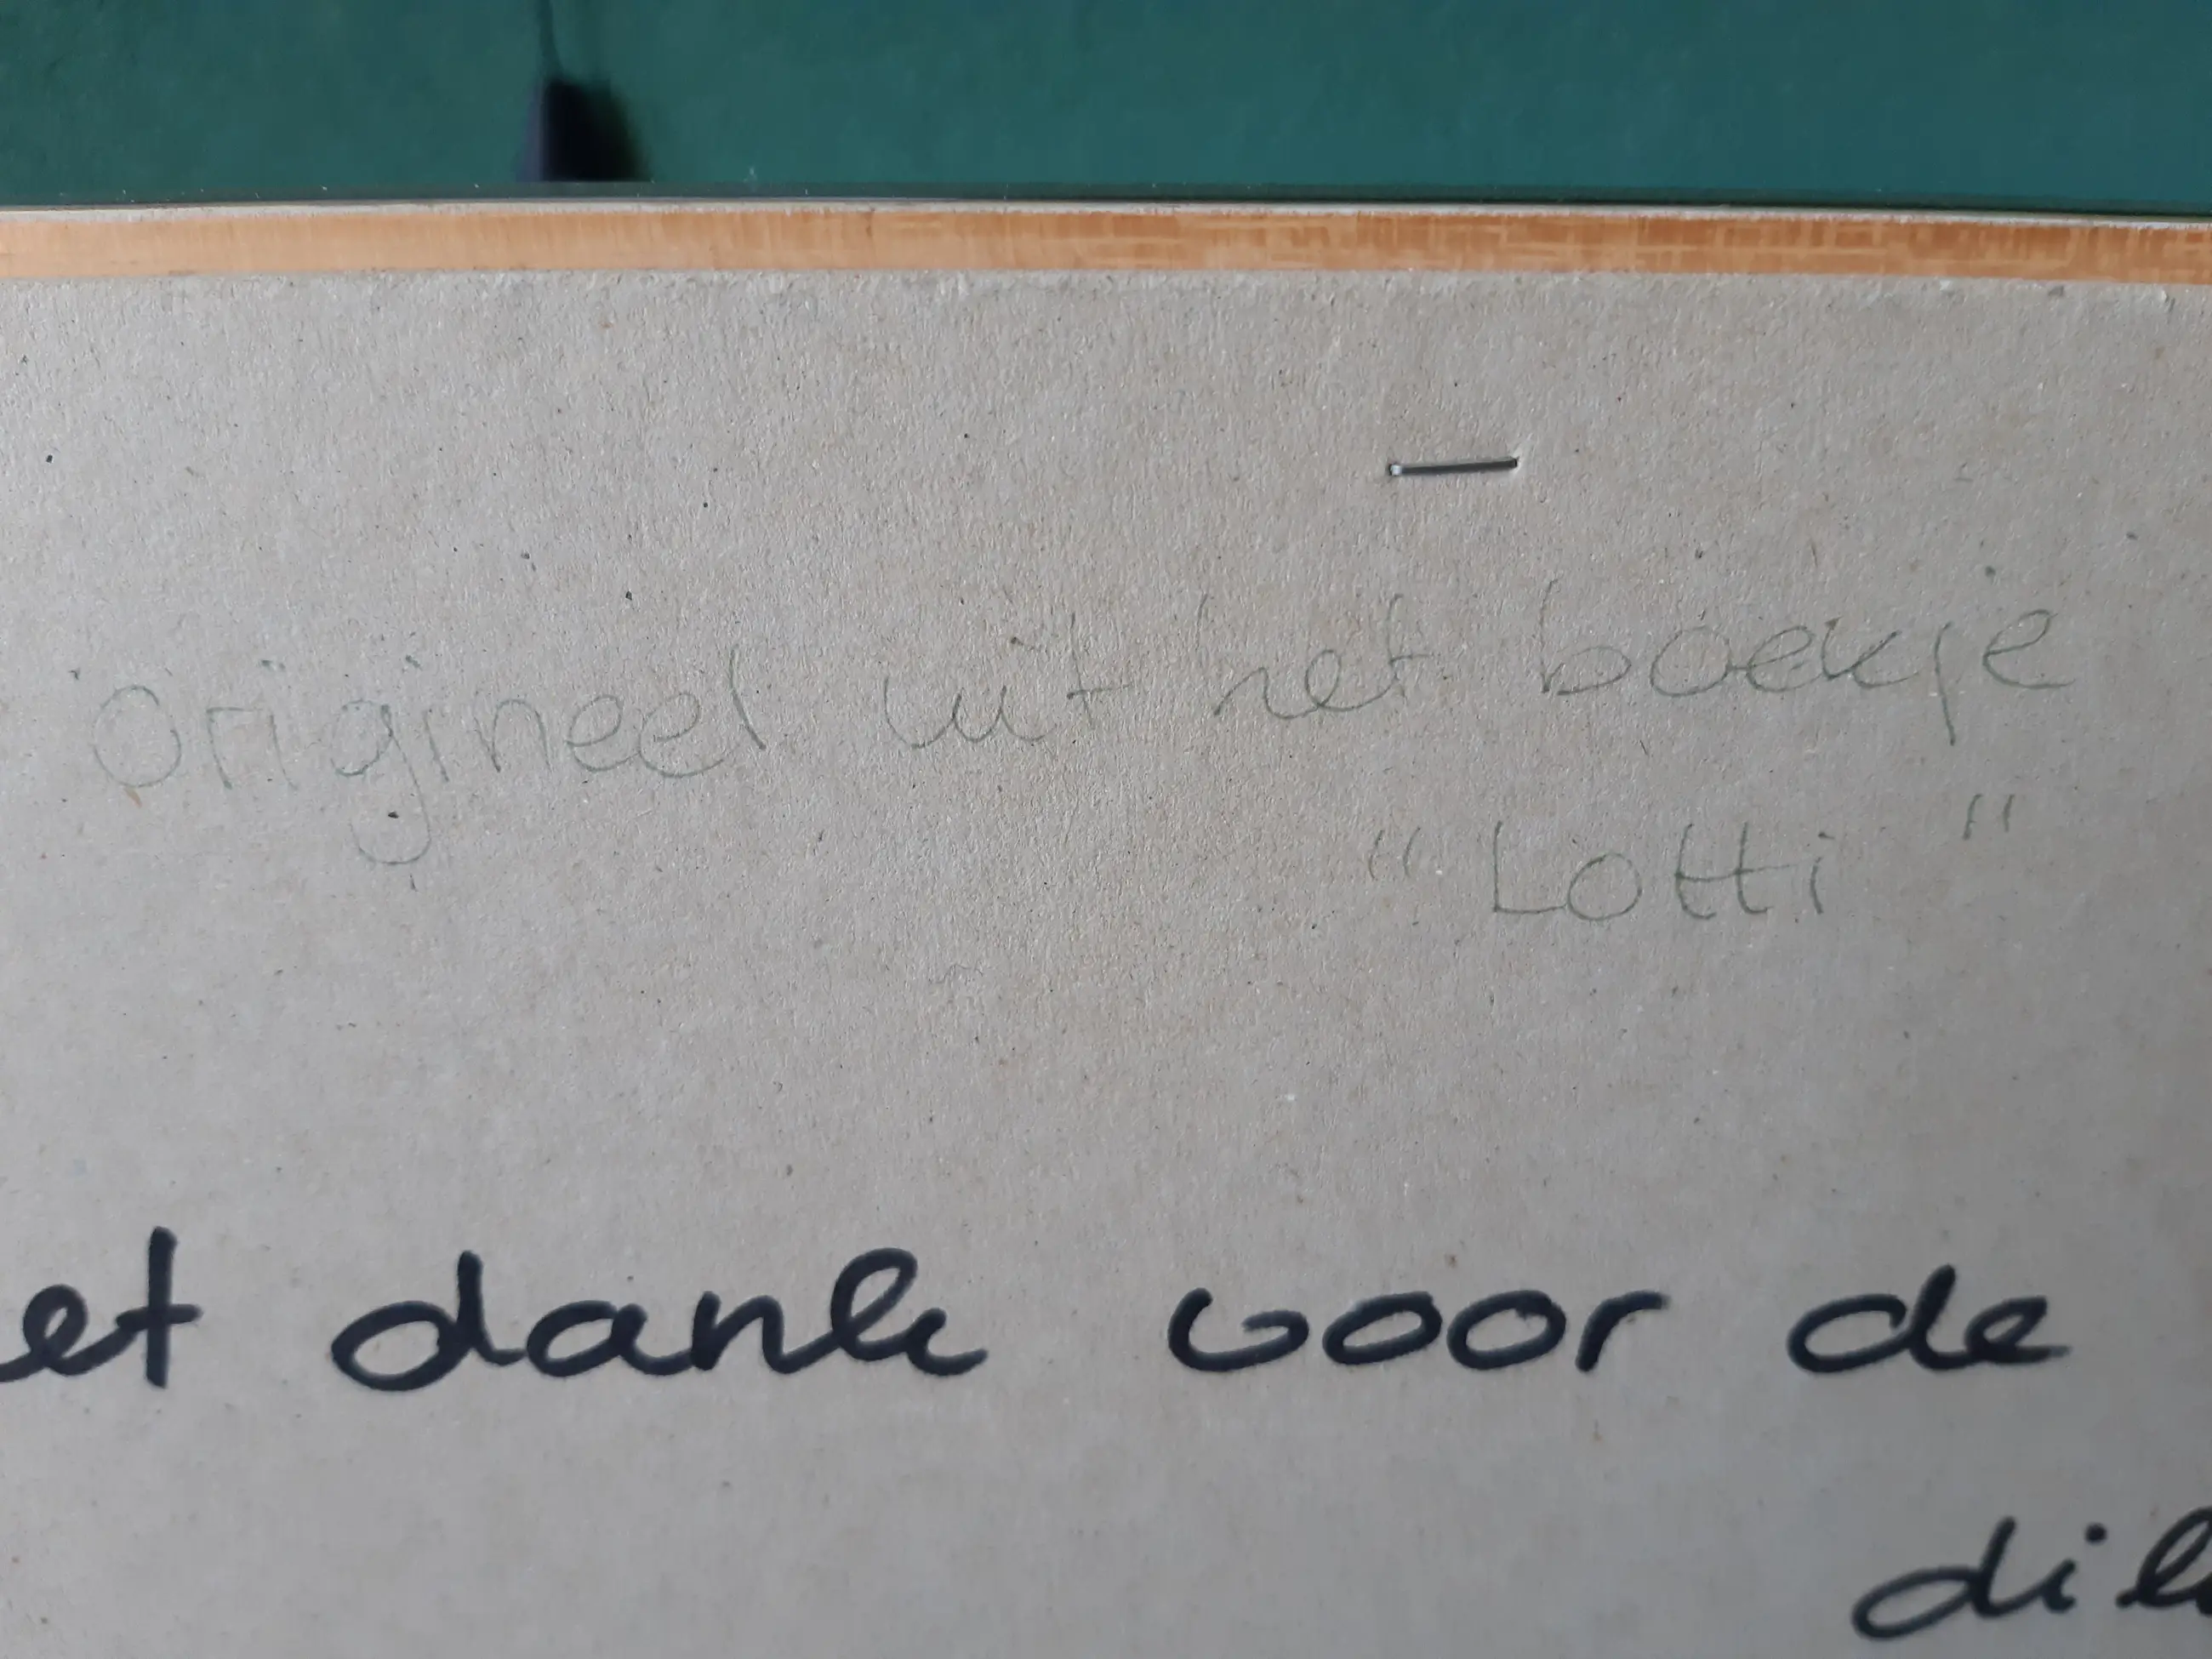 origineel uit het boekje
"Lotti"
et dank voor de